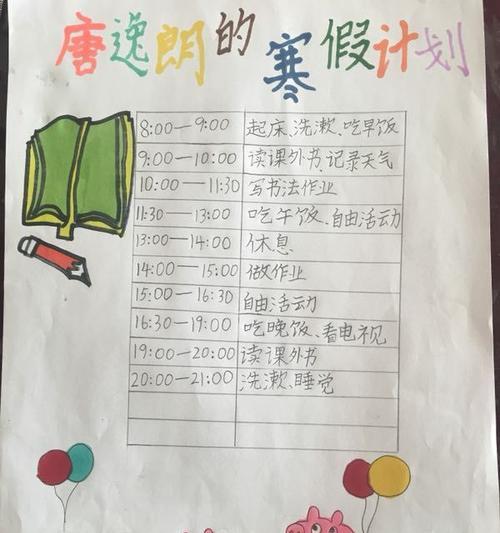 唐逸朗的寒假计划
8:00—9:00 起床、洗漱、吃早饭
9:00—10:00 读课外书、记录天气
10:00—11:30 写书法作业
11:30—13:00 吃午饭、自由活动
13:00—14:00 休息
14:00—15:00 做作业
15:00—16:30 自由活动
16:30—19:00 吃晚饭、看电视
19:00—20:00 读课外书
20:00—21:00 洗漱、睡觉